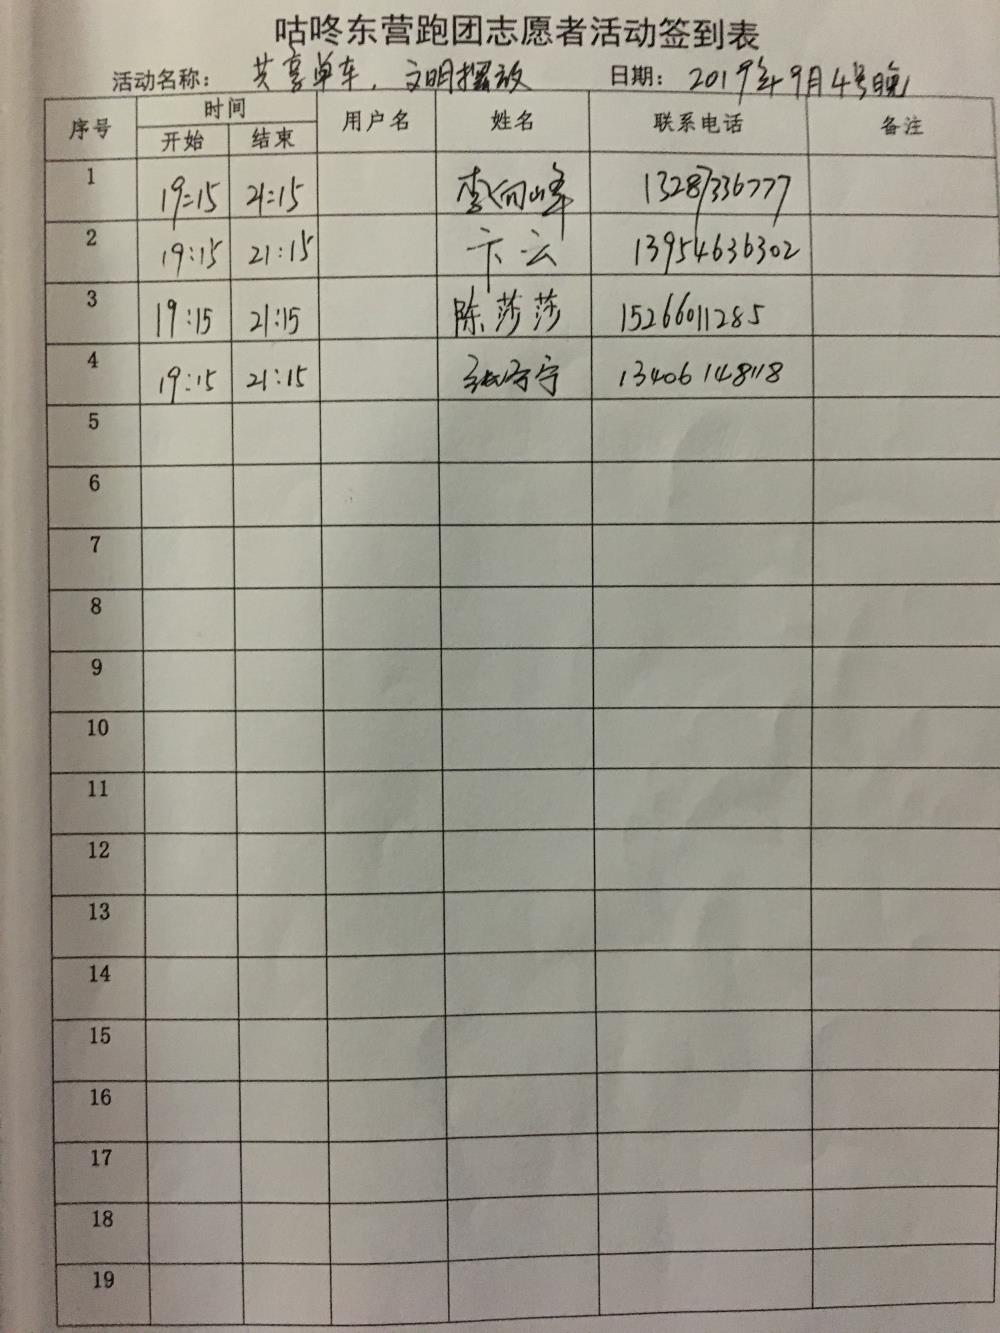 咕咚东营跑团志愿者活动签到表
活动名称： 共享单车，文明摆放 日期： 2019年9月4号晚
序号 时间 用户名 姓名 联系电话 备注
开始 结束
1 19:15 21:15 李向峰 13287336777
2 19:15 21:15 卞云 13954636302
3 19:15 21:15 陈莎莎 15266011285
4 19:15 21:15 宁 13406148118
5
6
7
8
9
10
11
12
13
14
15
16
17
18
19